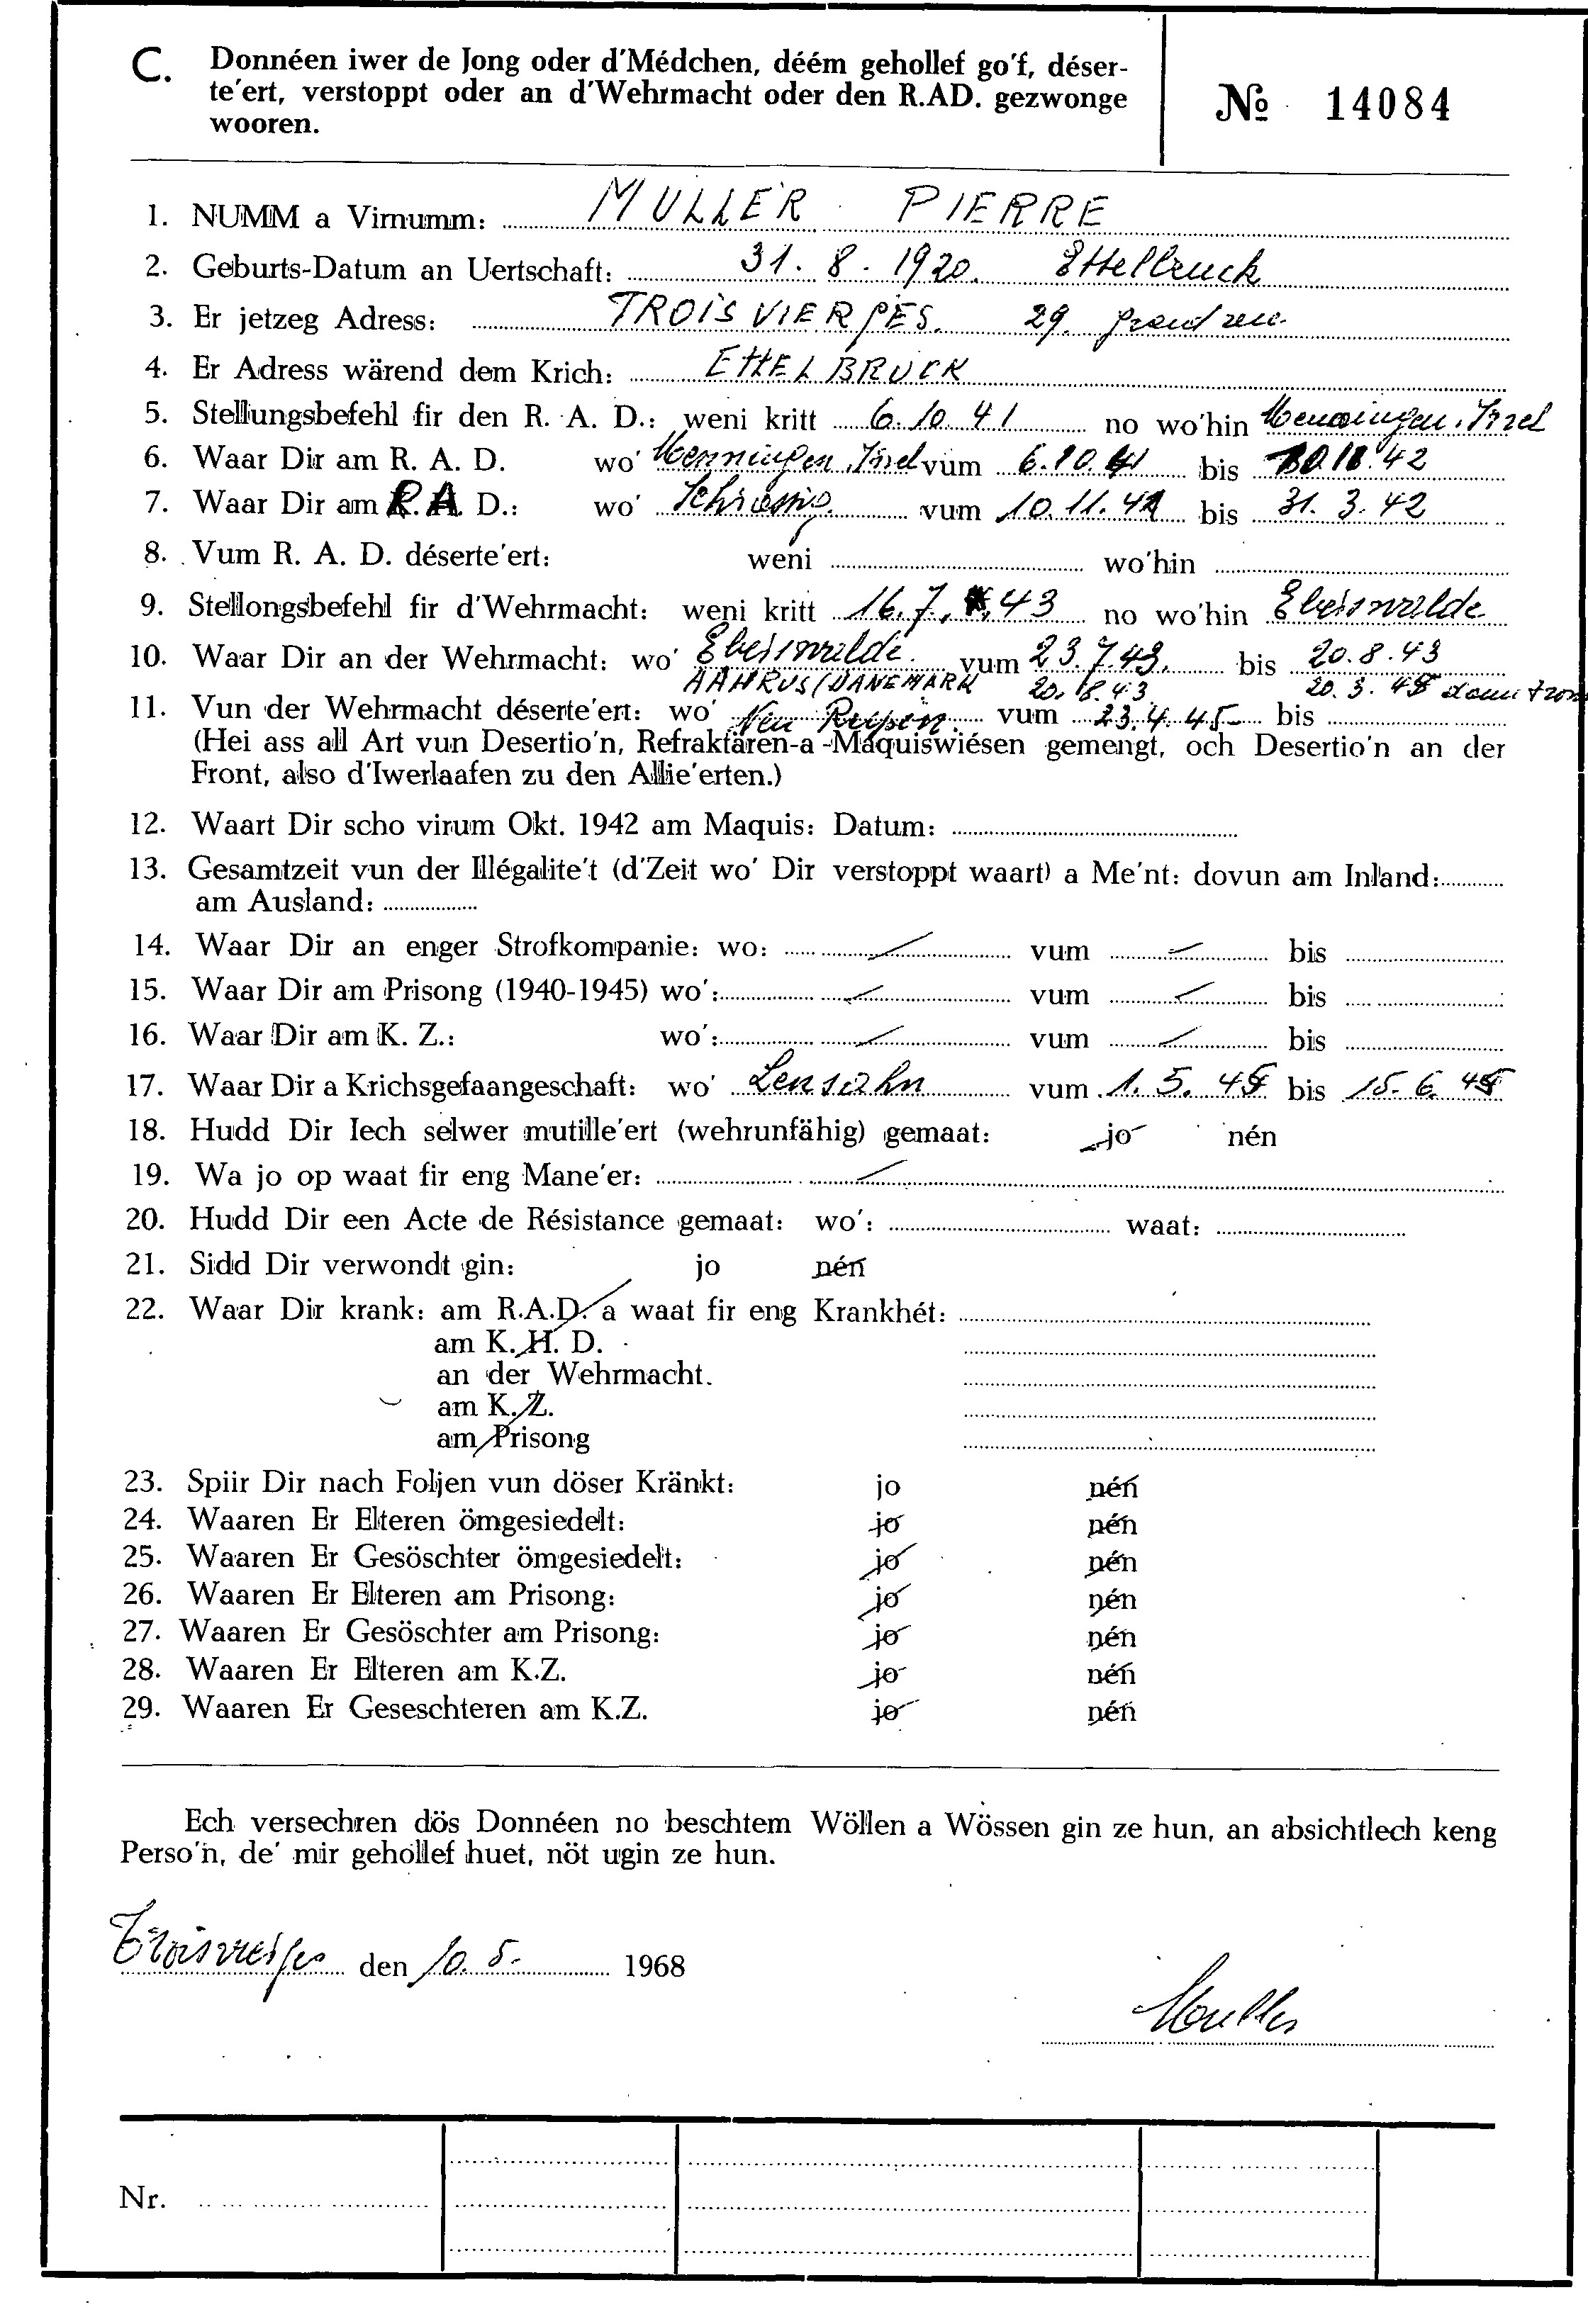 C. Donnéen iwer de Jong oder d'Médchen, déém gehollef go'f, déser-
te'ert, verstoppt oder an d'Wehrmacht oder den R.AD. gezwonge
wooren.
№ 14084
1. NUMM a Virnumm: MULLER PIERRE
2. Geburts-Datum an Uertschaft: 31. 8. 1920. Ettelbruck
3. Er jetzeg Adress: TROISVIERGES. 29. grand rue.
4. Er Adress wärend dem Krich: ETTELBRUCK
5. Stellungsbefehl fir den R. A. D.: weni kritt 6.10.41 no wo'hin
6. Waar Dir am R. A. D. wo' vum 6.10.41 bis
7. Waar Dir am R. A. D.: wo' vum 10.11.41 bis 31. 3. 42
8. Vum R. A. D. déserte'ert: weni wo'hin
9. Stellongsbefehl fir d'Wehrmacht: weni kritt 16.7.43 no wo'hin Eberswalde
10. Waar Dir an der Wehrmacht: wo' Eberswalde. vum 23.7.43. bis 20.8.43
AAHRUS/DANEMARK 20.8.43 20.3.45
11. Vun der Wehrmacht déserte'ert: wo' Neu Ruppin. vum 23.4.45 bis
(Hei ass all Art vun Desertio'n, Refraktären-a -Maquiswiésen gemengt, och Desertio'n an der
Front, also d'Iwerlaafen zu den Allie'erten.)
12. Waart Dir scho virum Okt. 1942 am Maquis: Datum:
13. Gesamtzeit vun der Illégalite't (d'Zeit wo' Dir verstoppt waart) a Me'nt: dovun am Inland:
am Ausland:
14. Waar Dir an enger Strofkompanie: wo: vum bis
15. Waar Dir am Prisong (1940-1945) wo': vum bis
16. Waar Dir am K. Z.: wo': vum bis
17. Waar Dir a Krichsgefaangeschaft: wo' Lensahn vum 1. 5. 45 bis 15. 6. 45
18. Hudd Dir Iech selwer mutille'ert (wehrunfähig) gemaat: jo nén
19. Wa jo op waat fir eng Mane'er:
20. Hudd Dir een Acte de Résistance gemaat: wo': waat:
21. Sidd Dir verwondt gin: jo nén
22. Waar Dir krank: am R.A.D. a waat fir eng Krankhét:
am K. H. D.
an der Wehrmacht.
am K. Z.
am Prisong
23. Spiir Dir nach Foljen vun döser Kränkt: jo nén
24. Waaren Er Elteren ömgesiedelt: jo nén
25. Waaren Er Gesöschter ömgesiedelt: jo nén
26. Waaren Er Elteren am Prisong: jo nén
27. Waaren Er Gesöschter am Prisong: jo nén
28. Waaren Er Elteren am K.Z. jo nén
29. Waaren Er Geseschteren am K.Z. jo nén
Ech versechren dös Donnéen no beschtem Wöllen a Wössen gin ze hun, an absichtlech keng
Perso'n, de' mir gehollef huet, nöt ugin ze hun.
Troisvierges den 10. 5. 1968
Nr.